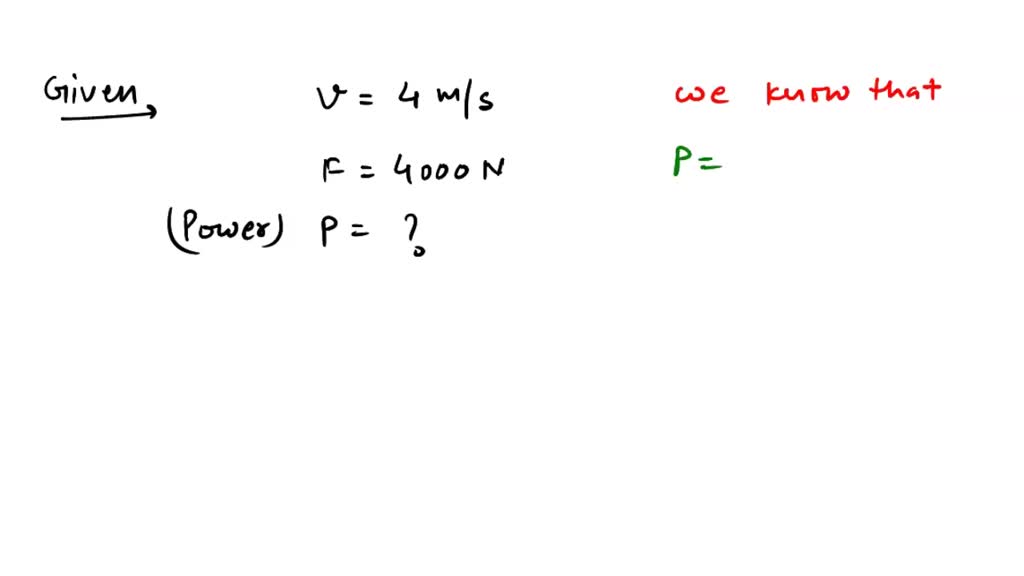 Given v = 4 m/s
F = 4000 N
(Power) P = ?
we know that
P =